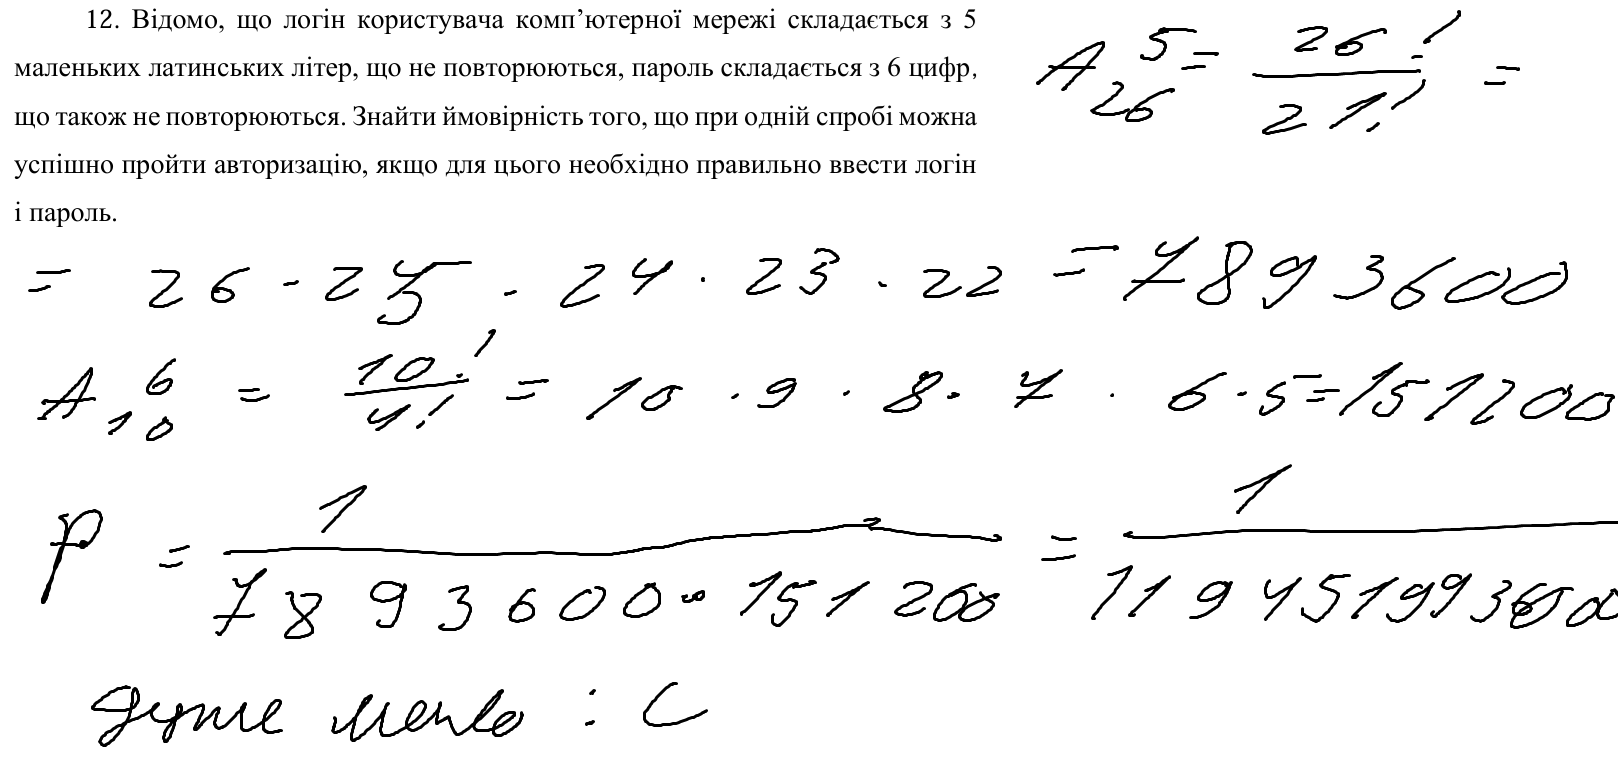 12. Відомо, що логін користувача комп’ютерної мережі складається з 5
маленьких латинських літер, що не повторюються, пароль складається з 6 цифр,
що також не повторюються. Знайти ймовірність того, що при одній спробі можна
успішно пройти авторизацію, якщо для цього необхідно правильно ввести логін
і пароль.
A₂₆⁵ = 26!/21! =
= 26 · 25 · 24 · 23 · 22 = 7893600
A₁₀⁶ = 10!/4! = 10 · 9 · 8 · 7 · 6 · 5 = 151200
P = 1/(7893600 · 151200) = 1/
дуже мало : C